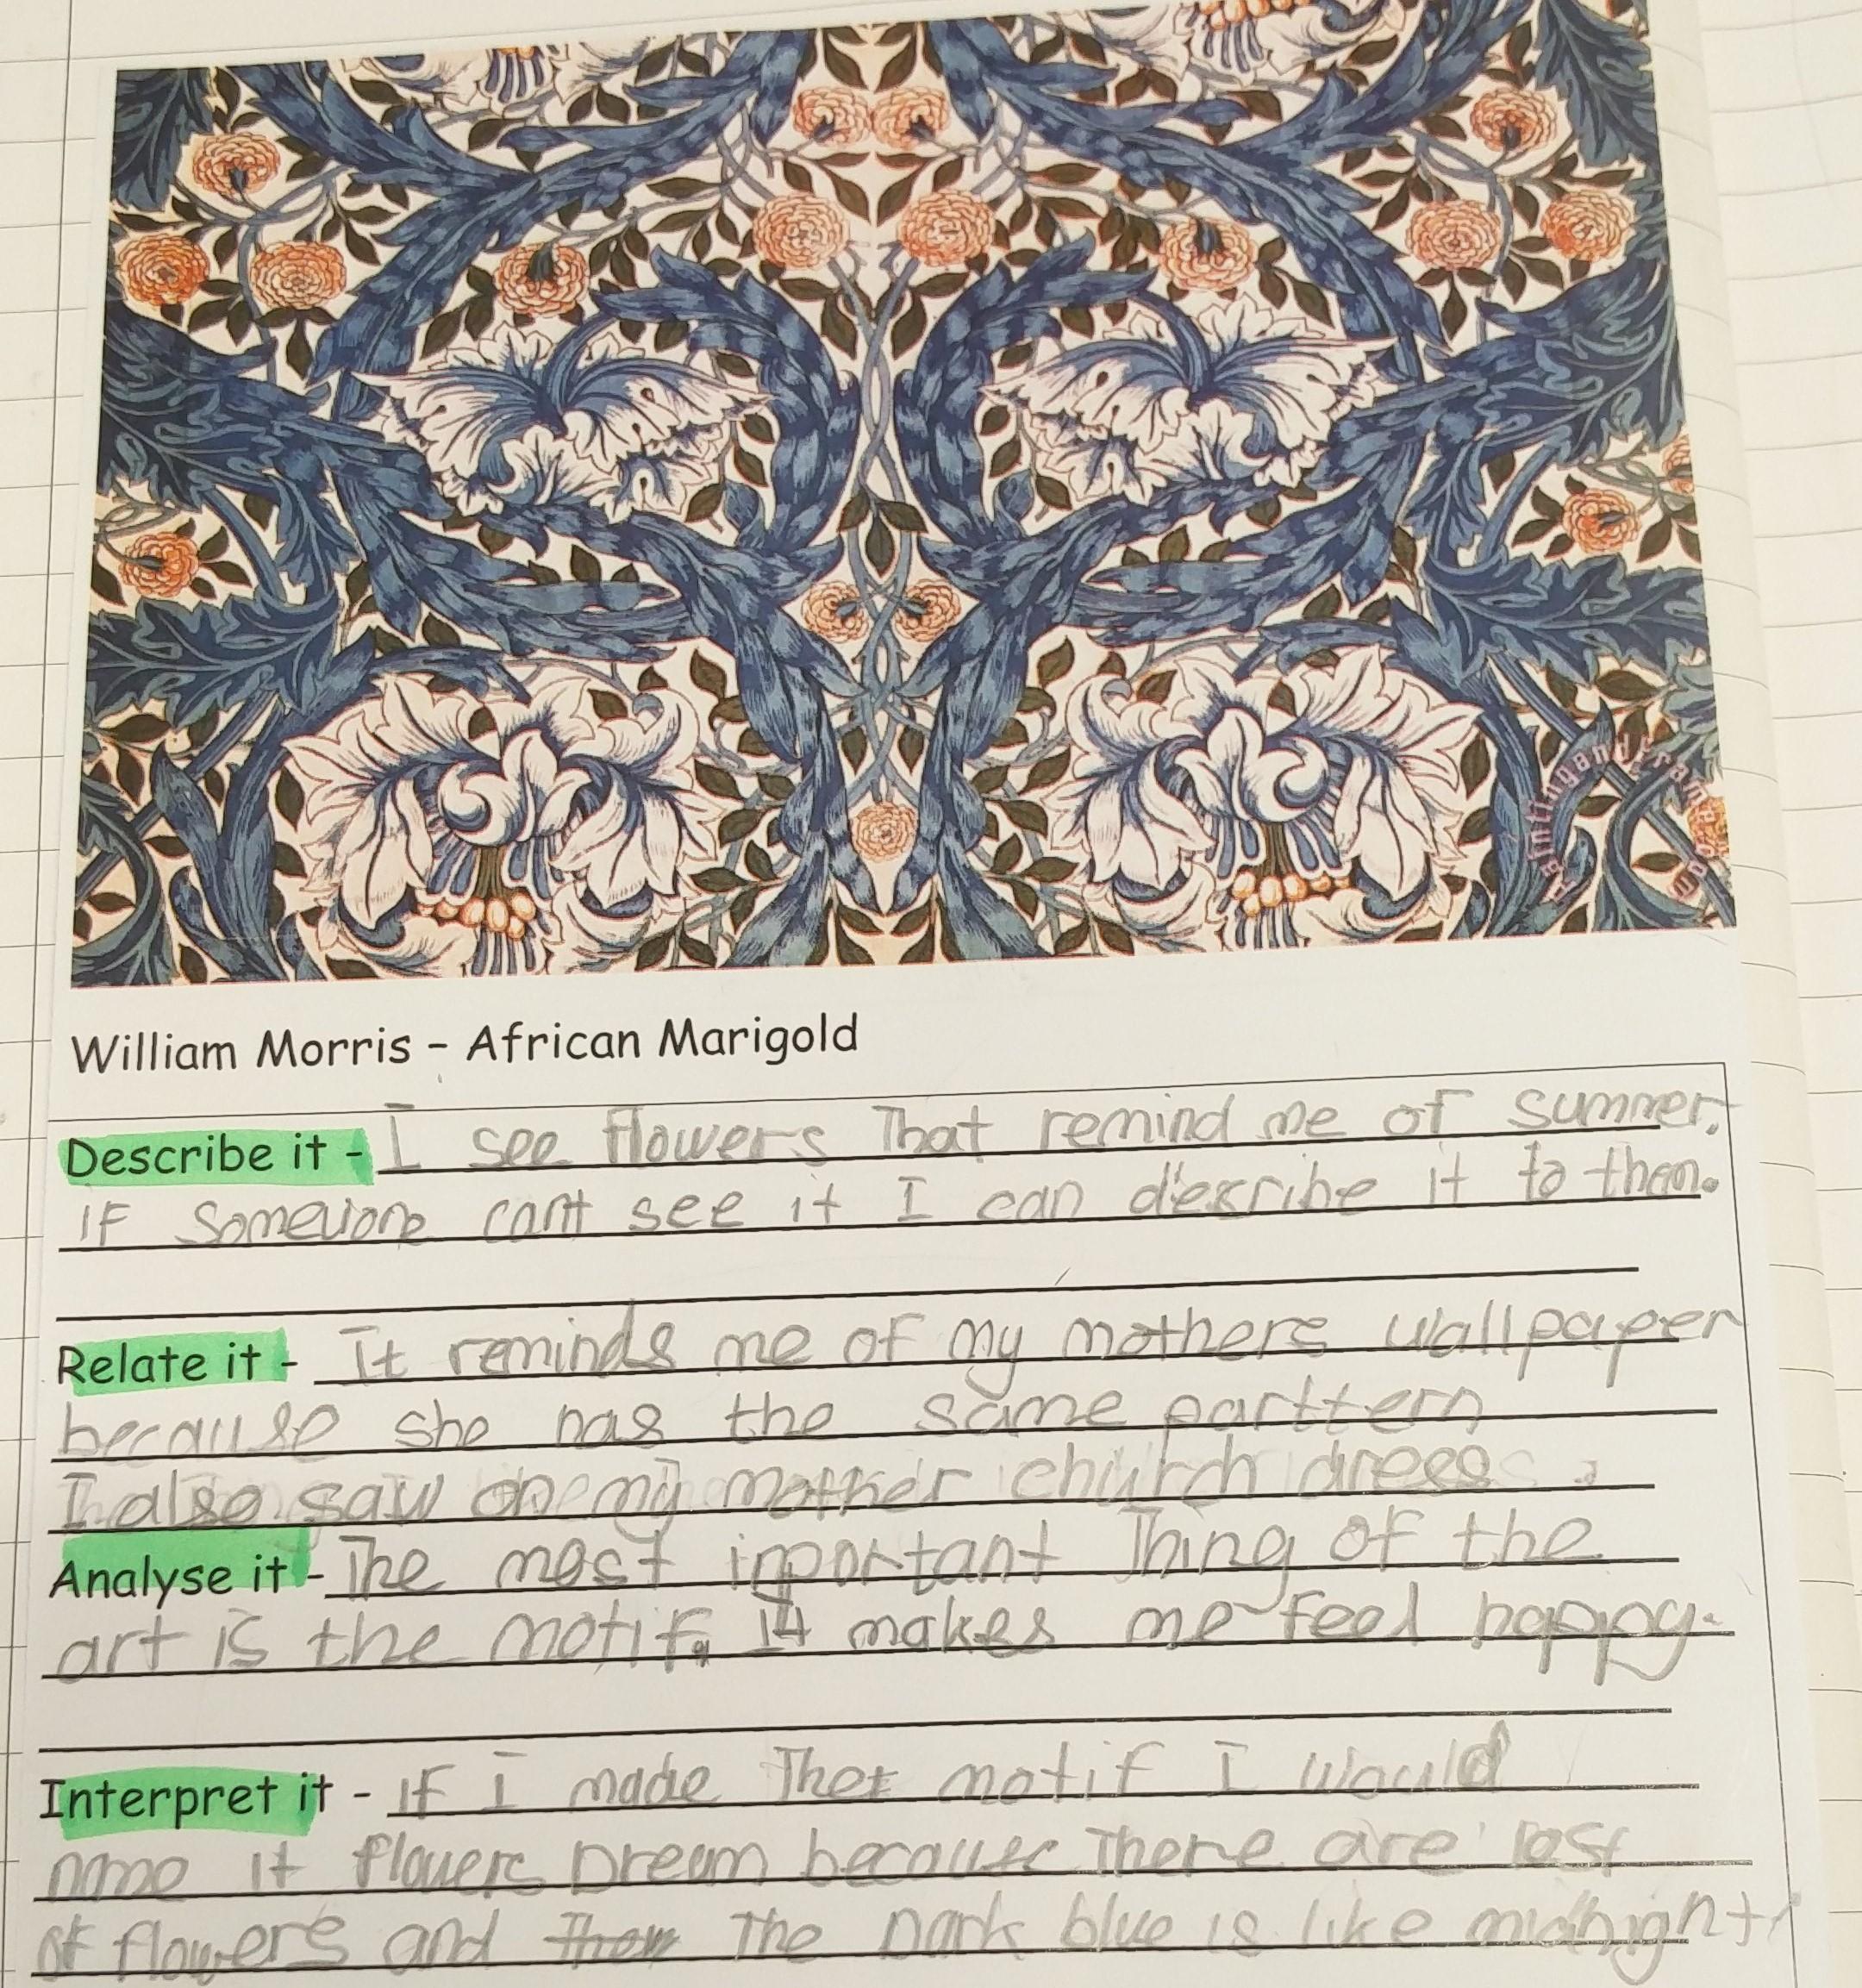 paintingandframe.com
William Morris - African Marigold
Describe it - I see flowers That remind me of summer.
if someione cant see it I can describe it to them.
Relate it - It reminds me of my mothers wallpaper
because she has the same parttern
I also saw on my mother church dress.
Analyse it - The most inportant Thing of the
art is the motif. It makes me feel happy.
Interpret it - if I made the motif I would
name it flowers Dream because There are
of flowers and the Dark blue is like midnight